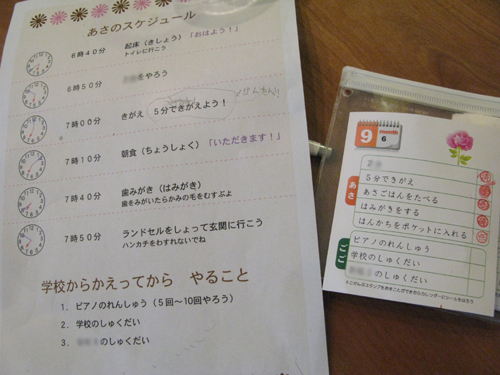 あさのスケジュール
6時40分 起床（きしょう）「おはよう！」
トイレに行こう
6時50分 をやろう
7時00分 きがえ 5分できがえよう！
7時10分 朝食（ちょうしょく）「いただきます！」
7時40分 歯みがき（はみがき）
歯をみがいたらかみの毛をむすぶよ
7時50分 ランドセルをしょって玄関に行こう
ハンカチをわすれないでね
学校からかえってから やること
1. ピアノのれんしゅう（5回～10回やろう）
2. 学校のしゅくだい
3. のしゅくだい
9 month 6
あさ
5分できがえ
あさごはんをたべる
はみがきをする
はんかちをポケットに入れる
ごご
ピアノのれんしゅう
学校のしゅくだい
のしゅくだい